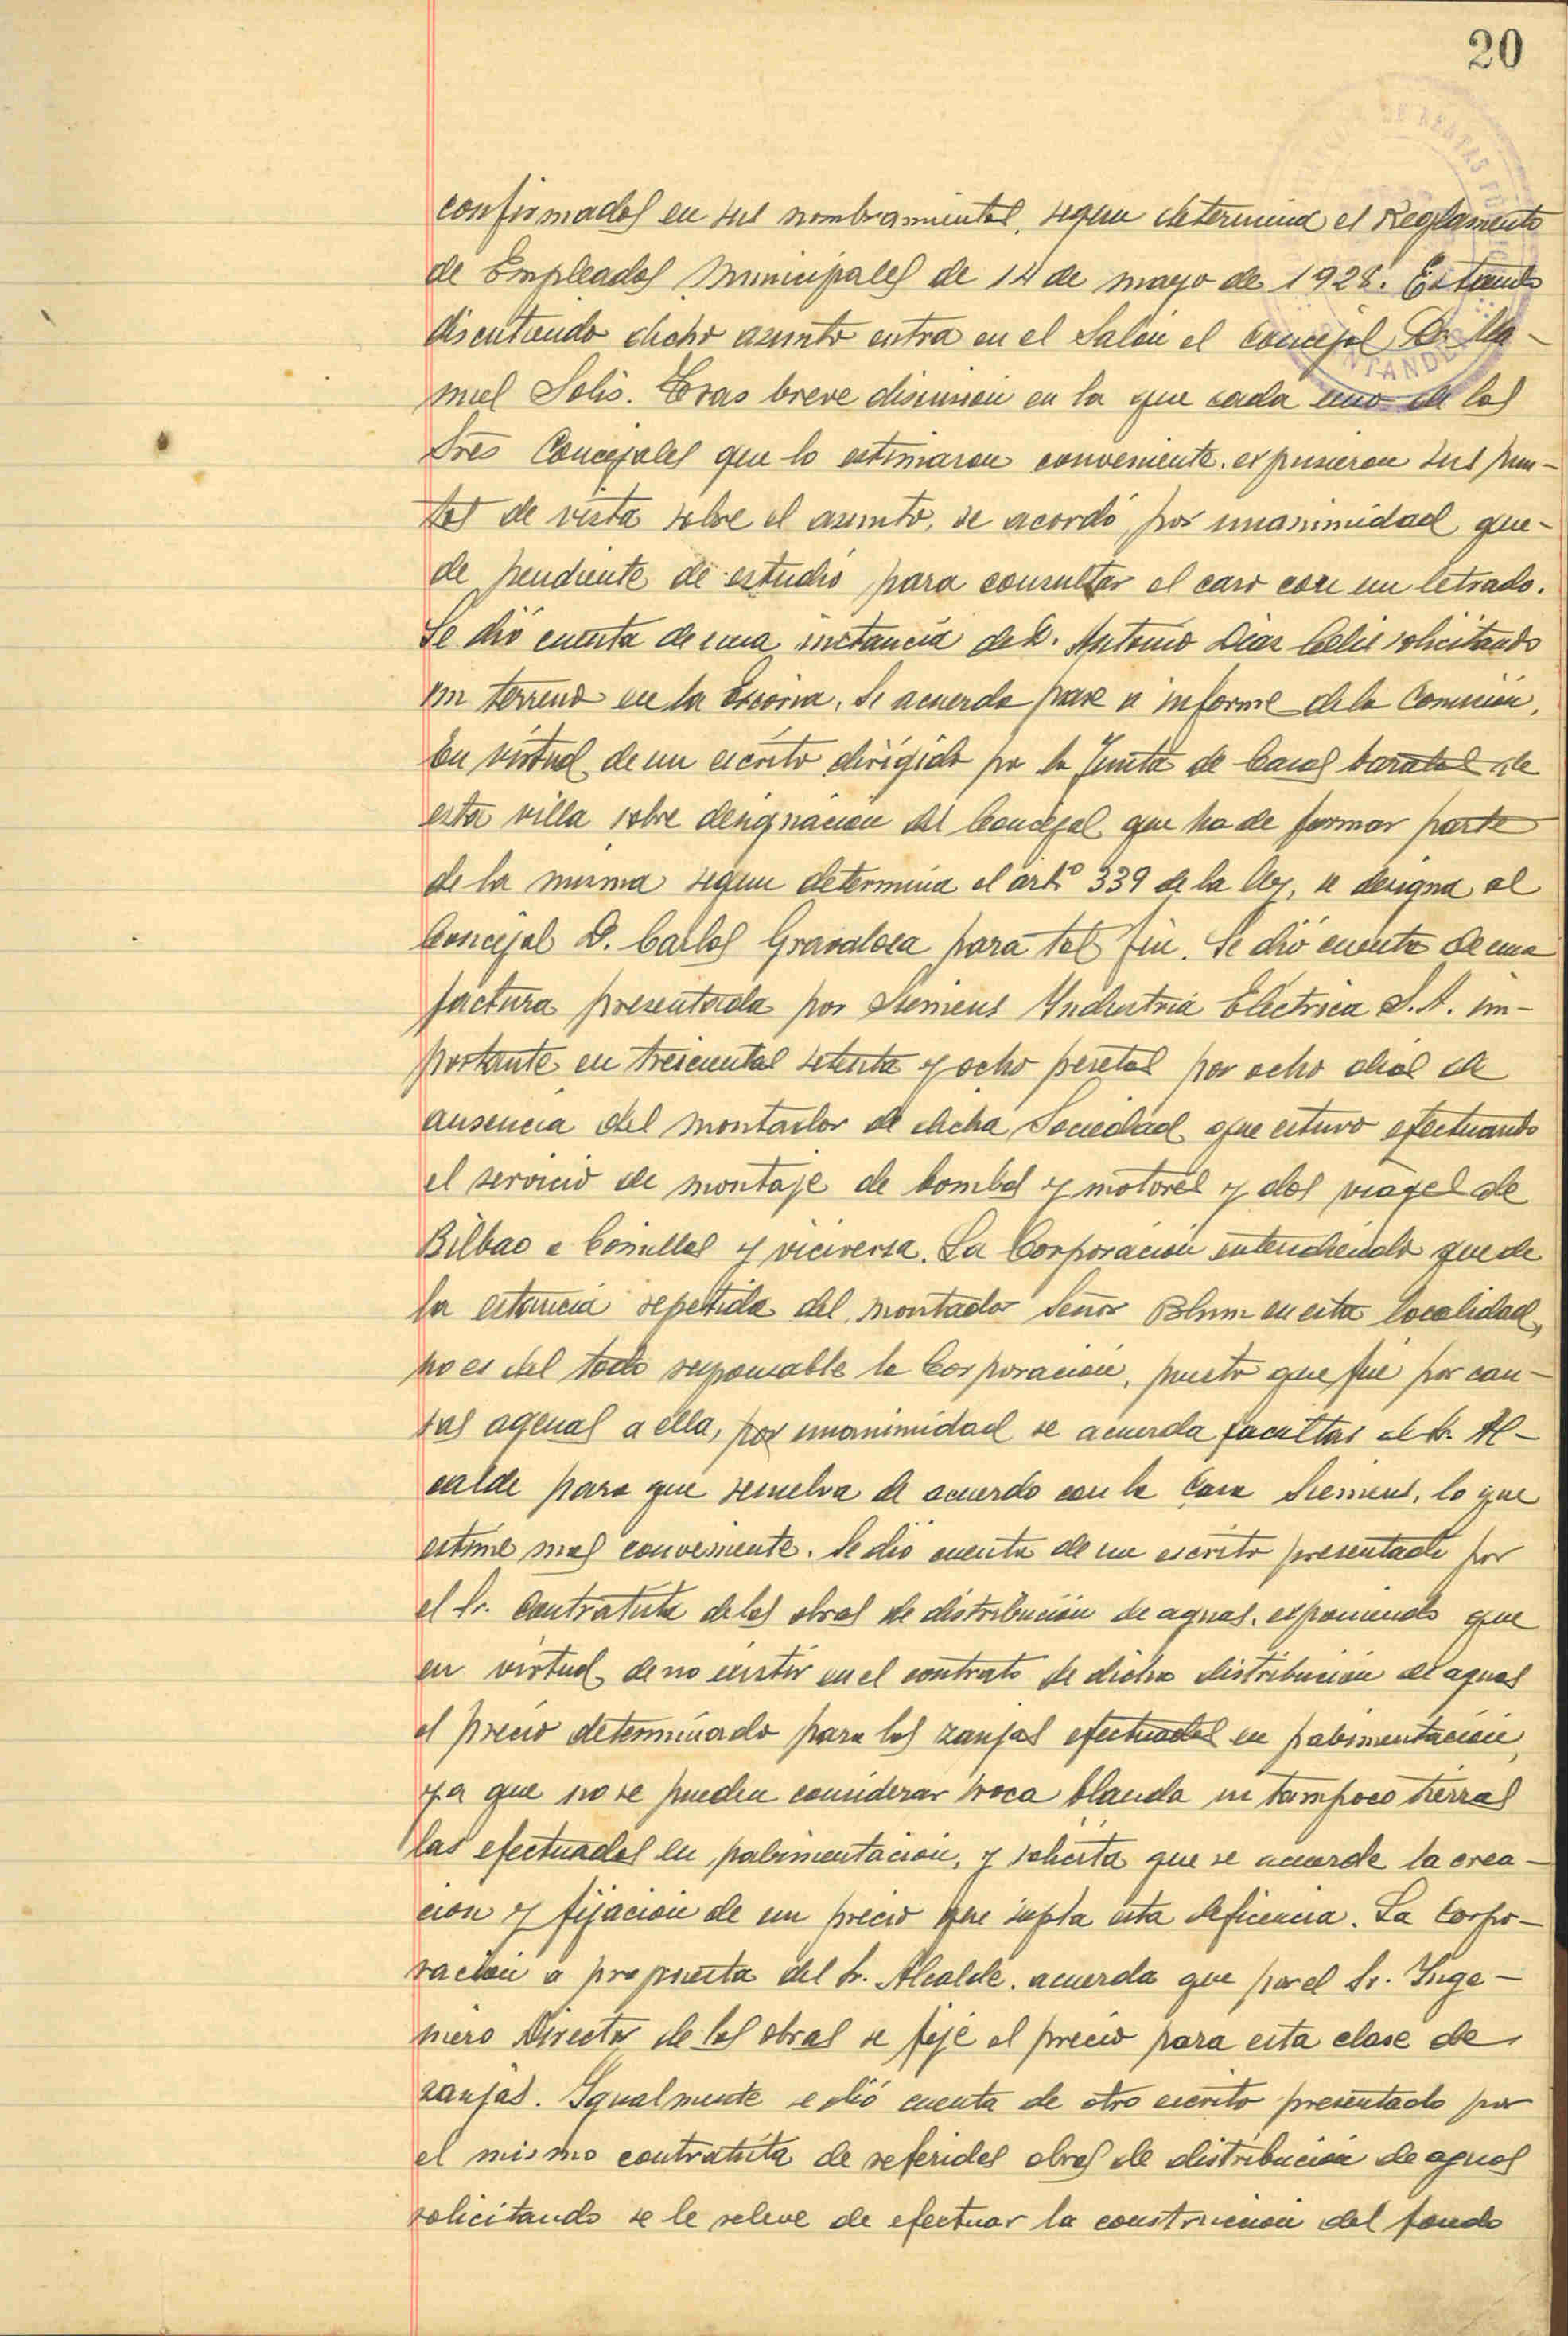 20
confirmados en sus nombramientos, segun determina el Reglamento
de Empleados Municipales de 14 de mayo de 1928. Estando
discutiendo dicho asunto entra en el Salón el Concejal D. Ma-
nuel Solis. Tras breve discusión en la que cada uno de los
Sres Concejales que lo estimaron conveniente expusieron sus pun-
tos de vista sobre el asunto, se acordó por unanimidad que-
de pendiente de estudio para consultar el caso con un letrado.
Se dió cuenta de una instancia de D. Antonio Diaz Celis solicitando
un terreno en la Escoria, Se acuerda pase a informe de la Comisión.
En virtud de un escrito dirigido por la Junta de Casas baratas de
esta villa sobre designación del Concejal que ha de formar parte
de la misma segun determina el artº 339 de la ley, se designa al
Concejal D. Carlos Gravalosa para tal fin. Se dió cuenta de una
factura presentada por Siemens Industria Eléctrica S.A. im-
portante en trescientas setenta y ocho pesetas por ocho dias de
ausencia del montador de dicha Sociedad que estuvo efectuando
el servicio de montaje de bombas y motores y dos viages de
Bilbao a Comillas y viciversa. La Corporación entendiendo que de
la estancia repetida del montador Señor Blum en esta localidad,
no es del todo responsable la Corporación, puesto que fué por cau-
sas agenas a ella, por unanimidad se acuerda facultar al Sr. Al-
calde para que resuelva de acuerdo con la Casa Siemens, lo que
estime mas conveniente. Se dió cuenta de un escrito presentado por
el Sr. Contratista de las obras de distribución de aguas, exponiendo que
en virtud de no existir en el contrato de dicha distribución de aguas
el precio determinado para las zanjas efectuadas en pabimentación,
ya que no se pueden considerar roca blanda ni tampoco tierras
las efectuadas en pabimentación, y solicita que se acuerde la crea-
ción y fijación de un precio que supla esta deficencia. La Corpo-
ración a propuesta del Sr. Alcalde, acuerda que por el Sr. Inge-
niero Director de las obras se fije el precio para esta clase de
zanjas. Igualmente se dió cuenta de otro escrito presentado por
el mismo contratista de referidas obras de distribución de aguas
solicitando se le releve de efectuar la construcción del fondo